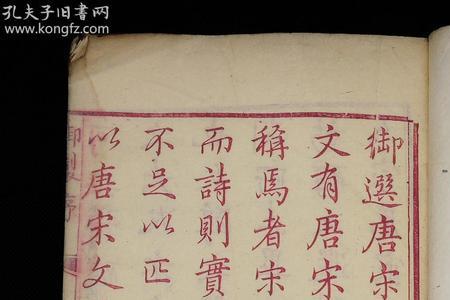 孔夫子旧书网
www.kongfz.com
御選唐宋
文有唐宋
稱焉者宋
而詩則實
不足以匹
以唐宋文
御製序